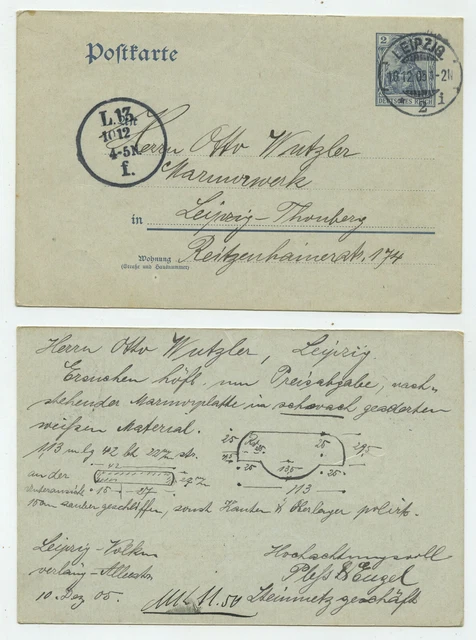 Postkarte
2
DEUTSCHES REICH
LEIPZIG
10.12.05
2 i
L.13.
10 12
4-5N
f.
Herrn Otto Wutzler
Marmorwerk
in Leipzig-Thonberg
Wohnung
(Straße und Hausnummer)
Reitzenhainerstr. 174
Herrn Otto Wutzler, Leipzig.
Ersuchen höfl. um Preisabgabe, nach-
stehender Marmorplatte in schwach geaderten
weißen Material.
113 m lg 42 bt
an der
42
15 27
25 25
25 135 25
113
15 cm sauber geschliffen, sonst Kanten & Oberlager polirt.
Leipzig-Volkm
10 Dez 05.
M 11.50
Hochachtungsvoll
Pleß & Engel
Steinmetzgeschäft